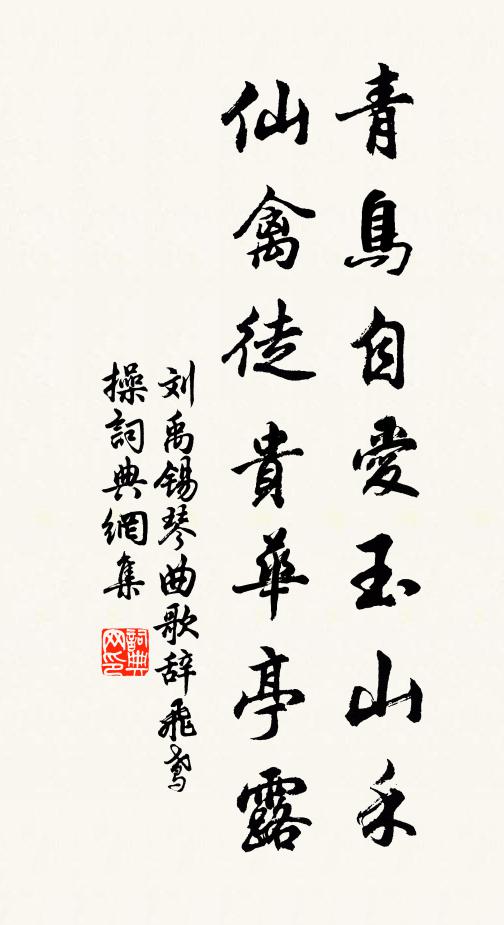 青鳥自愛玉山禾
仙禽徒貴華亭露
刘禹锡琴曲歌辞飛鸢
操詞典網集
詞典网印